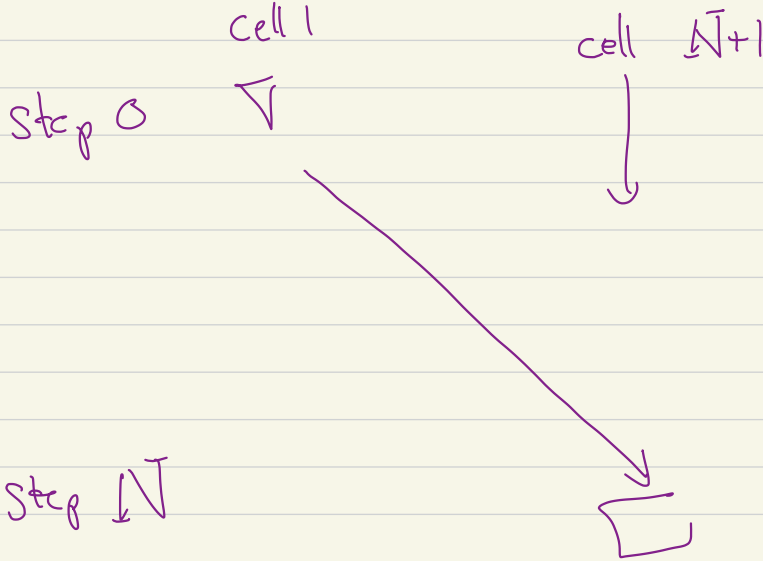 cell 1
cell N+1
step 0
step N